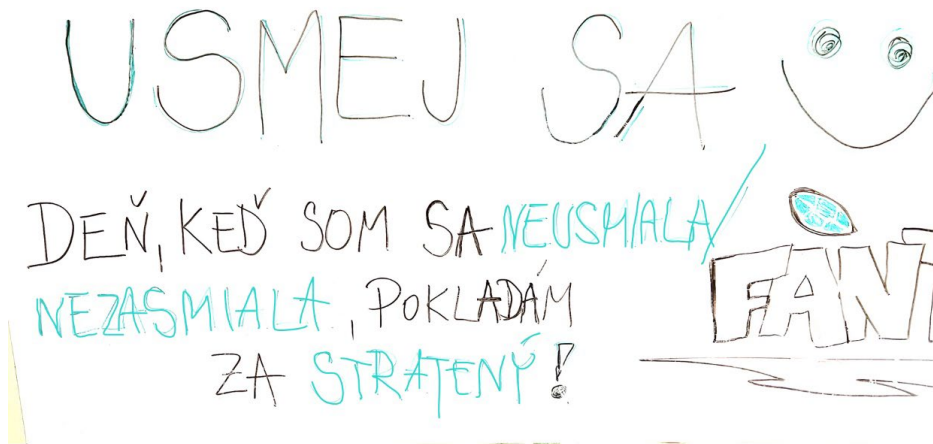 USMEJ SA
DEŇ, KEĎ SOM SA NEUSMIALA/
NEZASMIALA, POKLADÁM
ZA STRATENÝ!